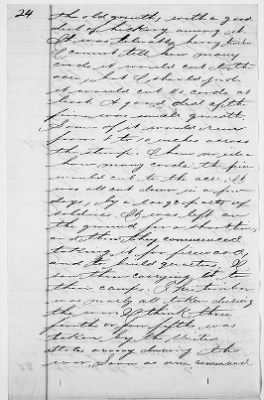 24
the old growth, with a good
deal of hickory among it.
It was very heavy timber
I cannot tell how many
cords it would cut to the
acre, but I should judge
it would cut 40 cords at
least. A good deal of the
pine was small growth
Some of it would run
from 8 to 10 inches across
the stump. I have no idea
how many cords the pine
would cut to the acre. It
was all cut down in a few
days, by a large party of
soldiers. It was left on
the ground for a short time,
and then they commenced
taking it for firewood
and to build quarters. I
saw them carrying it to
their camps. The timber
was nearly all taken during
the war. I think three
fourths or four fifths was
taken by the United
States army during the
war. Soon as we commenced